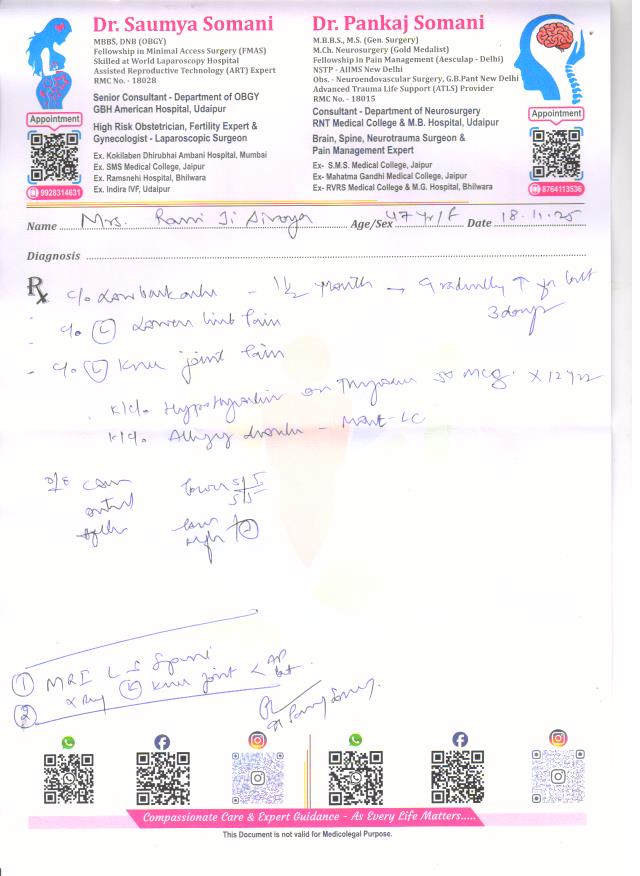 Dr. Saumya Somani
MBBS, DNB (OBGY)
Fellowship in Minimal Access Surgery (FMAS)
Skilled at World Laparoscopy Hospital
Assisted Reproductive Technology (ART) Expert
RMC No. - 18028
Senior Consultant - Department of OBGY
GBH American Hospital, Udaipur
High Risk Obstetrician, Fertility Expert &
Gynecologist - Laparoscopic Surgeon
Ex. Kokilaben Dhirubhai Ambani Hospital, Mumbai
Ex. SMS Medical College, Jaipur
Ex. Ramsnehi Hospital, Bhilwara
Ex. Indira IVF, Udaipur
Appointment
9928314631
Dr. Pankaj Somani
M.B.B.S., M.S. (Gen. Surgery)
M.Ch. Neurosurgery (Gold Medalist)
Fellowship in Pain Management (Aesculap - Delhi)
NSTP - AIIMS New Delhi
Obs. - Neuroendovascular Surgery, G.B.Pant New Delhi
Advanced Trauma Life Support (ATLS) Provider
RMC No. - 18015
Consultant - Department of Neurosurgery
RNT Medical College & M.B. Hospital, Udaipur
Brain, Spine, Neurotrauma Surgeon &
Pain Management Expert
Ex- S.M.S. Medical College, Jaipur
Ex- Mahatma Gandhi Medical College, Jaipur
Ex- RVRS Medical College & M.G. Hospital, Bhilwara
Appointment
8764113536
Name Mrs. Ji Age/Sex 47 yr/f Date 18.11.25
Diagnosis
Rx c/o - 1½ month → Gradually ↑
3 days
- c/o (L) Lower limb Pain
- c/o (L) Knee joint Pain
K/c/o on 50 mcg. x 12 yr
K/c/o - Mont-LC
o/e lower 5/5 5/5
1 MRI L S Spine
2 x ray Knee joint < AP lat
Compassionate Care & Expert Guidance - As Every Life Matters.....
This Document is not valid for Medicolegal Purpose.